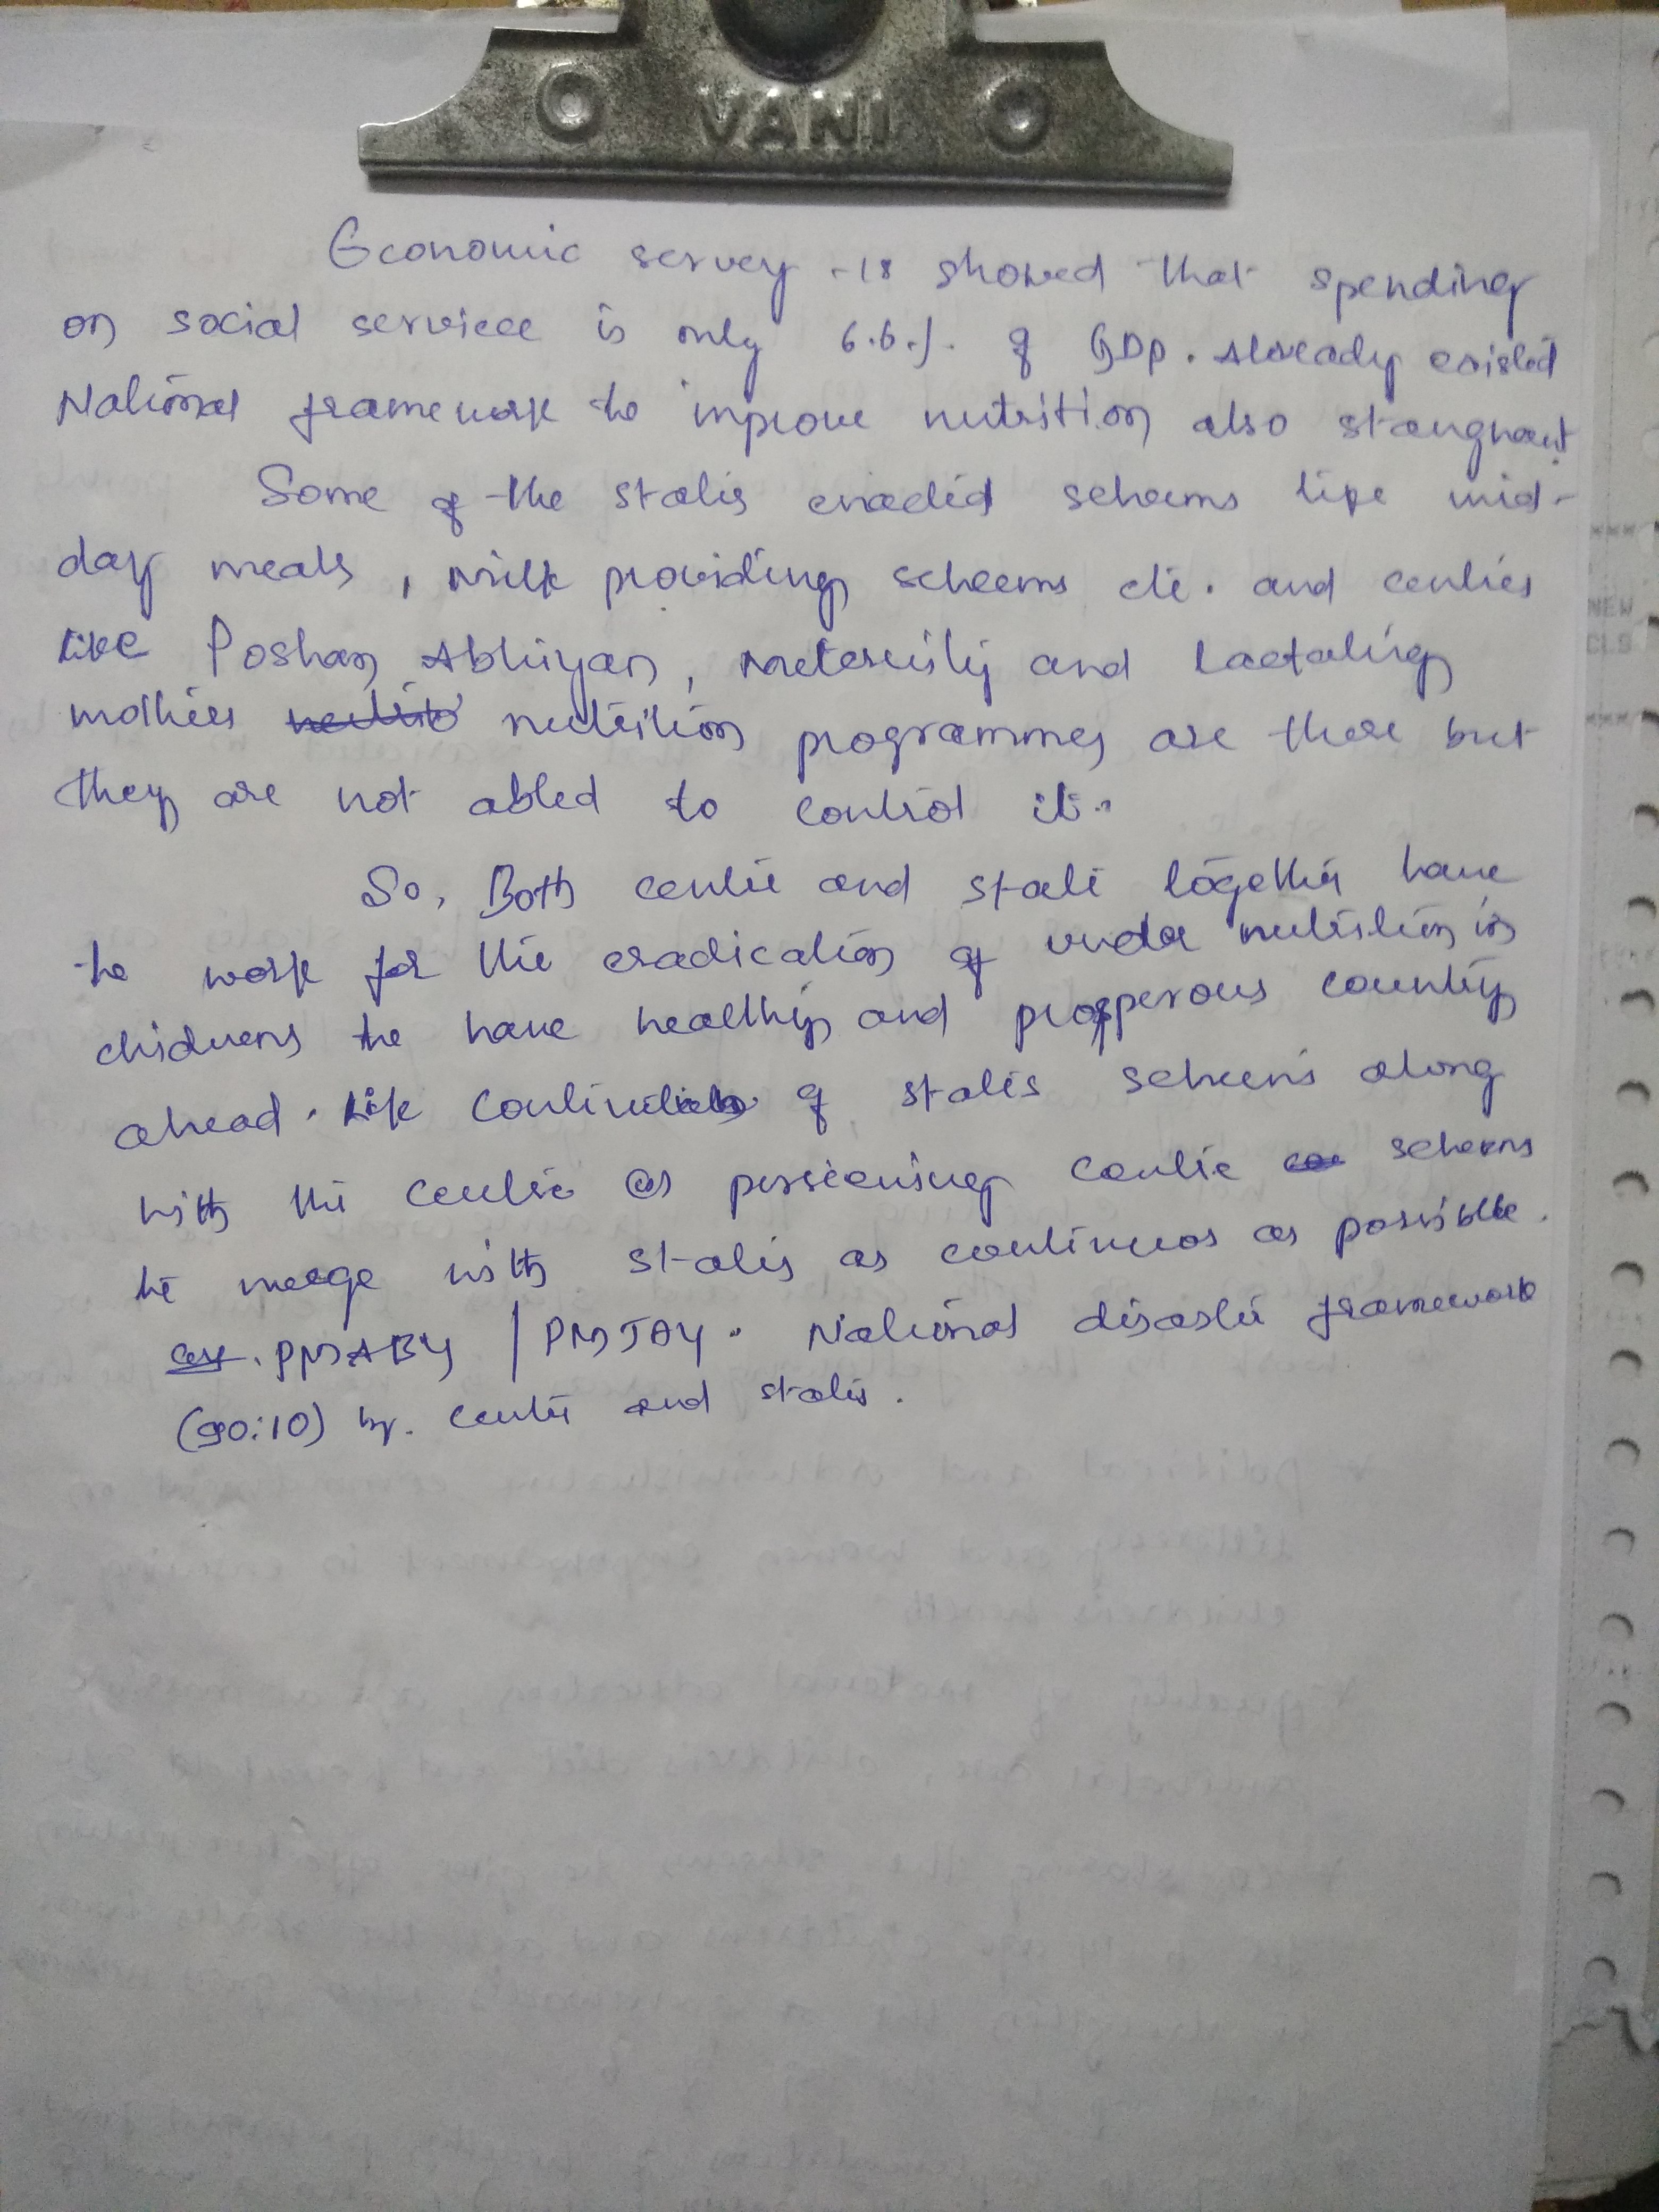 VANI
Economic servey -18 showed that spending
on social serviece is only 6.6.%. of GDP. Already existed
National framework to improve nutrition also stangnant
Some of the states enacted scheems like mid-
day meals, milk providing scheems etc. and centres
like Poshan Abhiyan, meternity and Lactating
mothers nutrition programmes are there but
they are not abled to control it.
So, Both centre and state together have
to work for the eradication of under nutrition in
to have healthy and prosperous country
ahead. like of states scheems along
with the centre as centre scheems
to merge with states as continuos as possible.
PMJAY. National disaster framework
(90:10) by. centre and states.
NEW
CLS